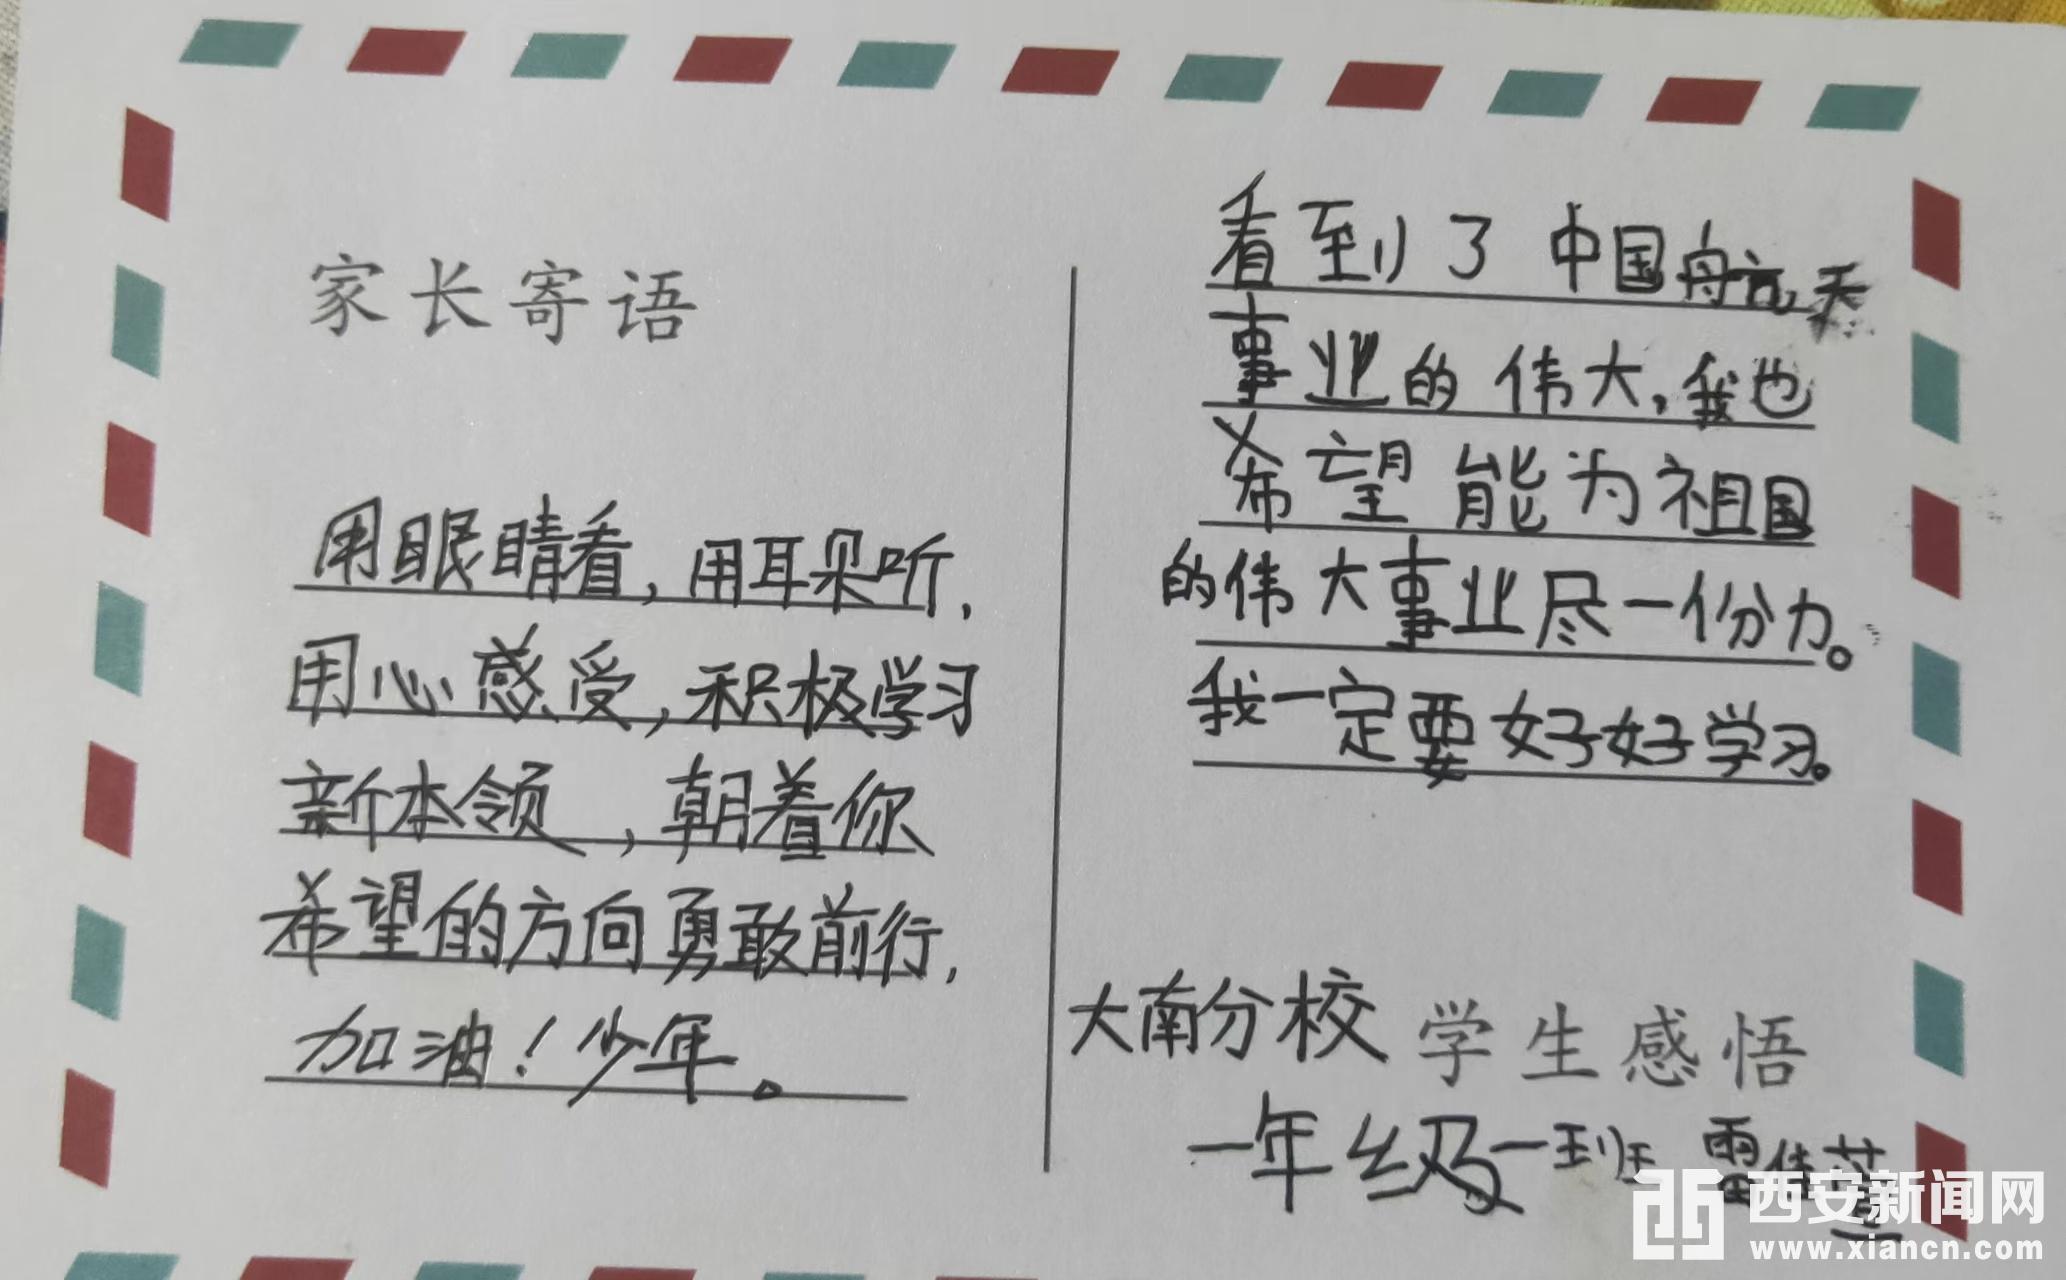 家长寄语
用眼睛看，用耳朵听，
用心感受，积极学习
新本领，朝着你
希望的方向勇敢前行，
加油！少年。
看到了中国航天
事业的伟大，我也
希望能为祖国
的伟大事业尽一份力。
我一定要好好学习。
大南分校 学生感悟
一年级一班 雷佳
西安新闻网
www.xiancn.com